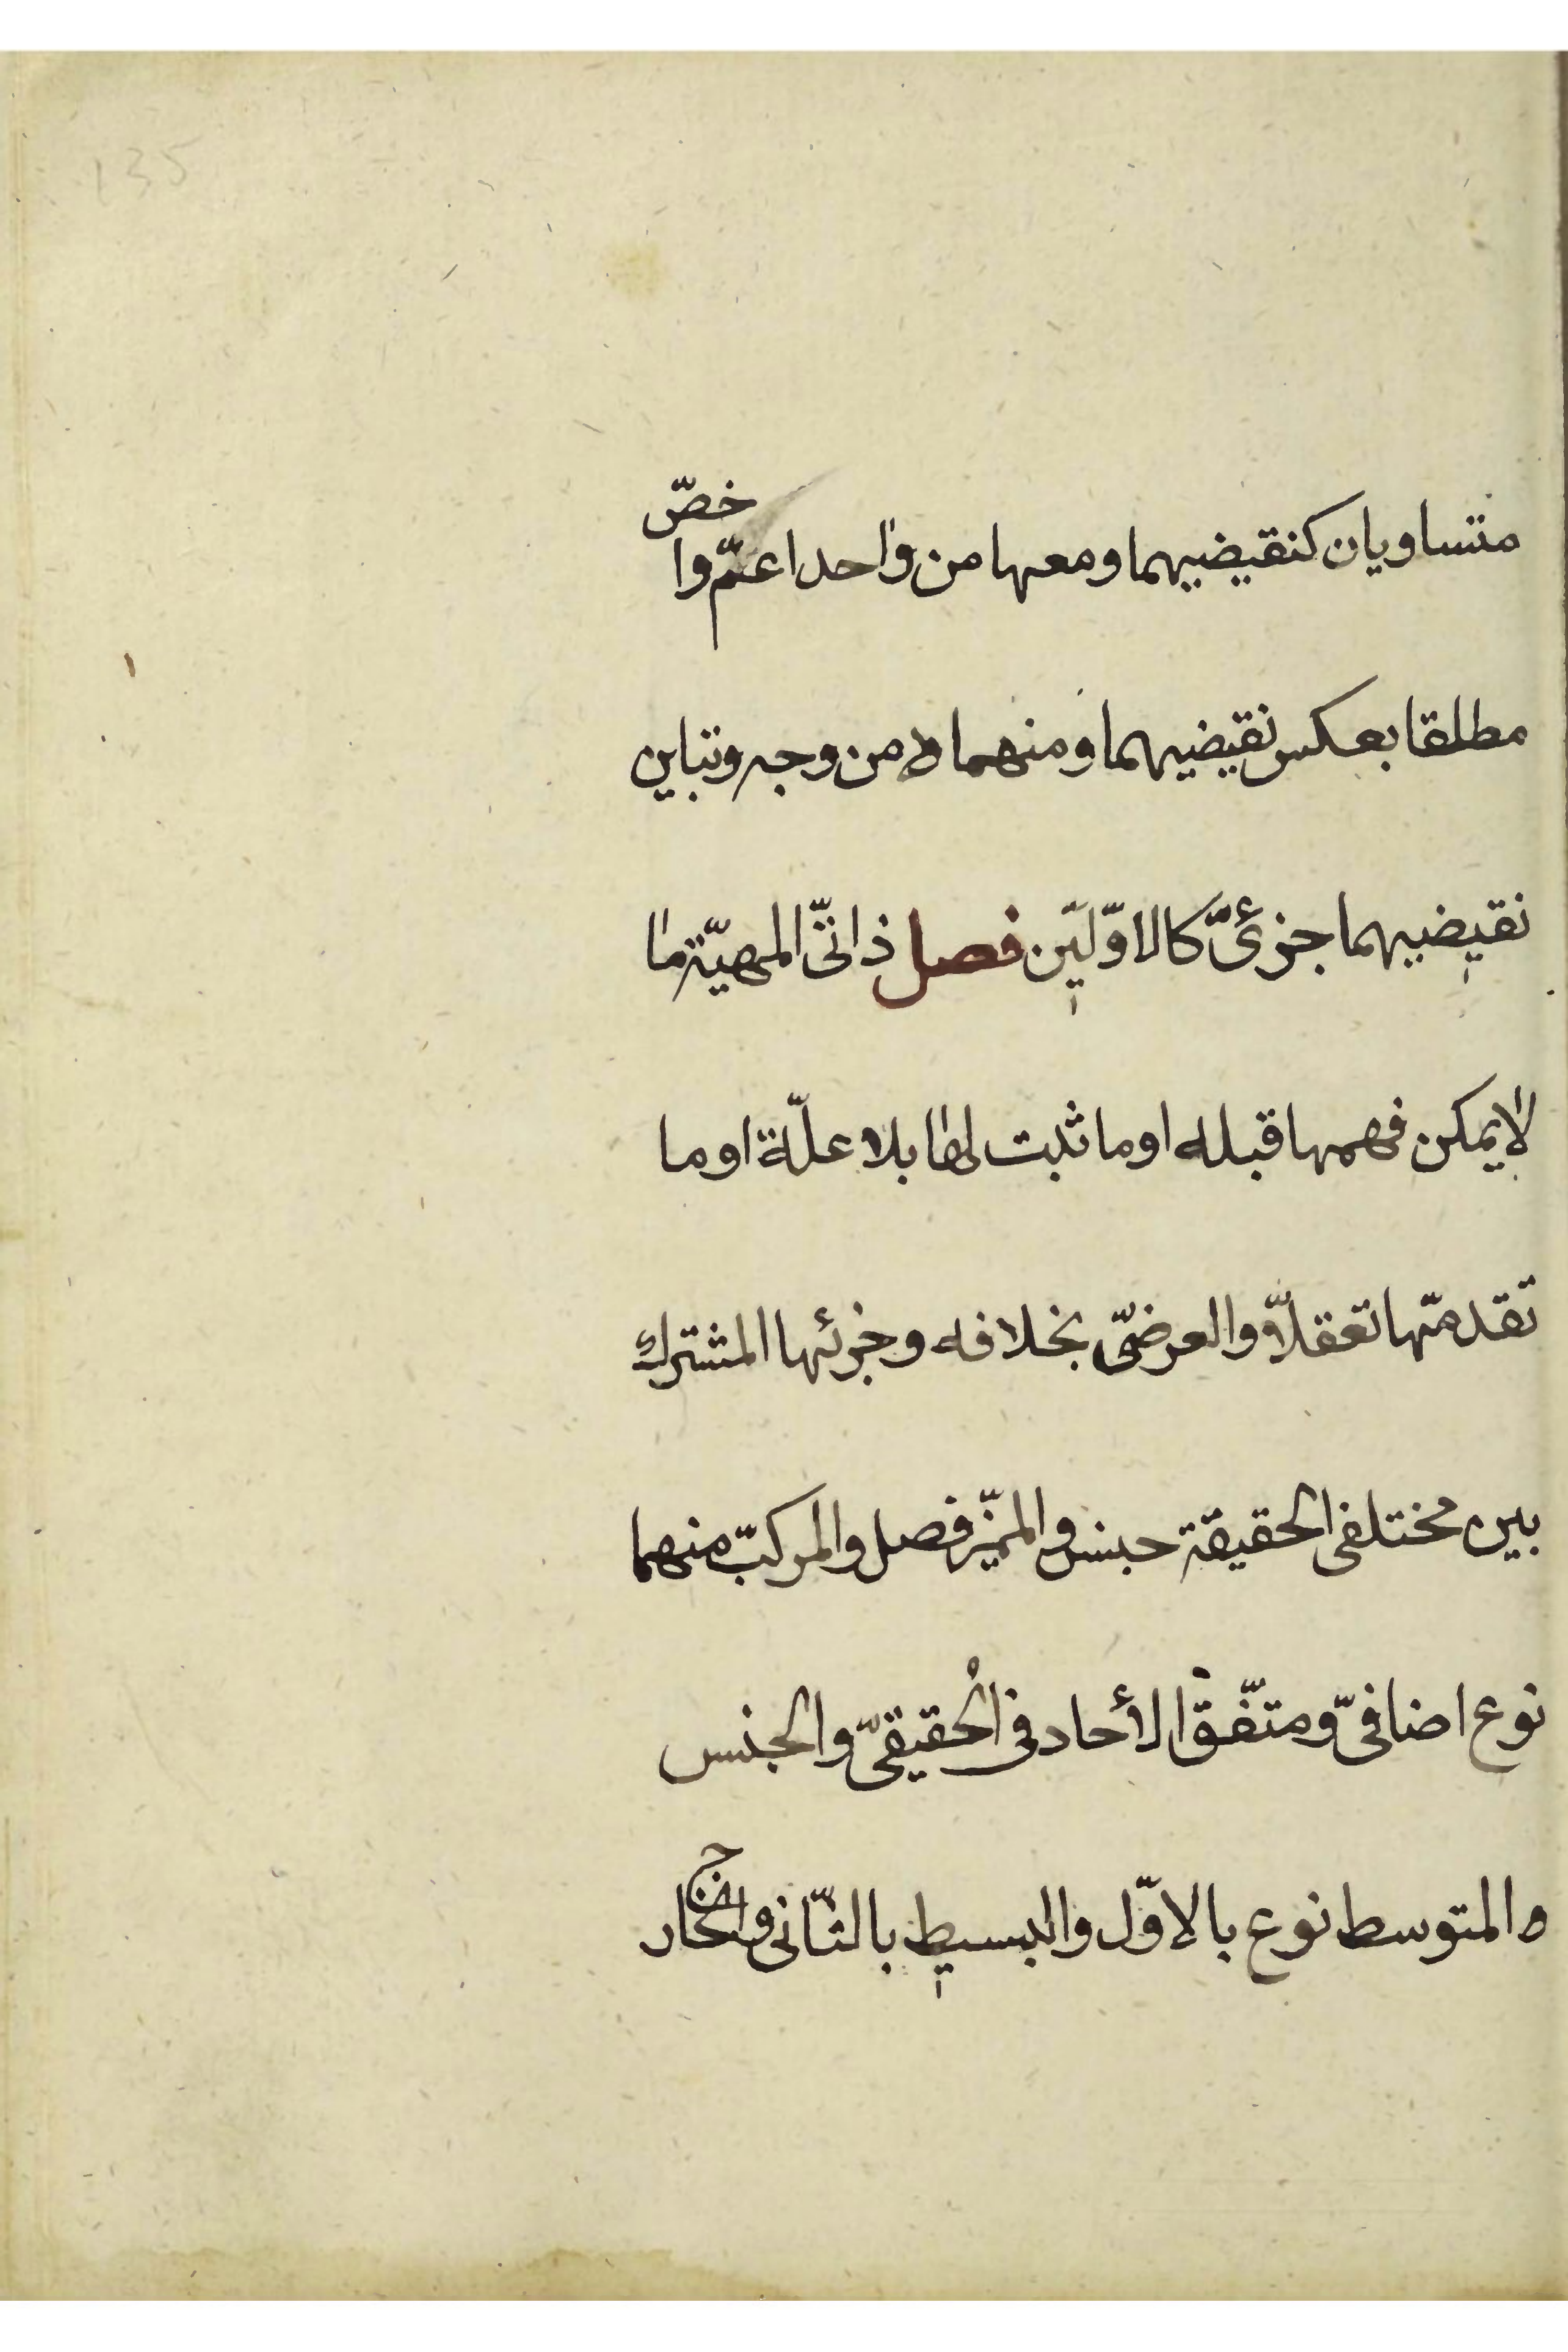 135
متساويان كنقيضيهما ومعها من واحد اعمّ واخصّ
مطلقا بعكس نقيضيهما ومنهما من وجه وتباين
نقيضيهما جزئىّ كالاوّلين فصل ذاتىّ المهيّة ما
لا يمكن فهمها قبله او ما ثبت لها بلا علّة او ما
تقدمها تعقلاّ والعرضىّ بخلافه وجزئها المشترك
بين مختلفى الحقيقة جنس والمميّز فصل والمركبّ منهما
نوع اضافىّ ومتّفق الأحاد فى الحقيقىّ والجنس
والمتوسط نوع بالاوّل والبسيط بالثّانى والخارج